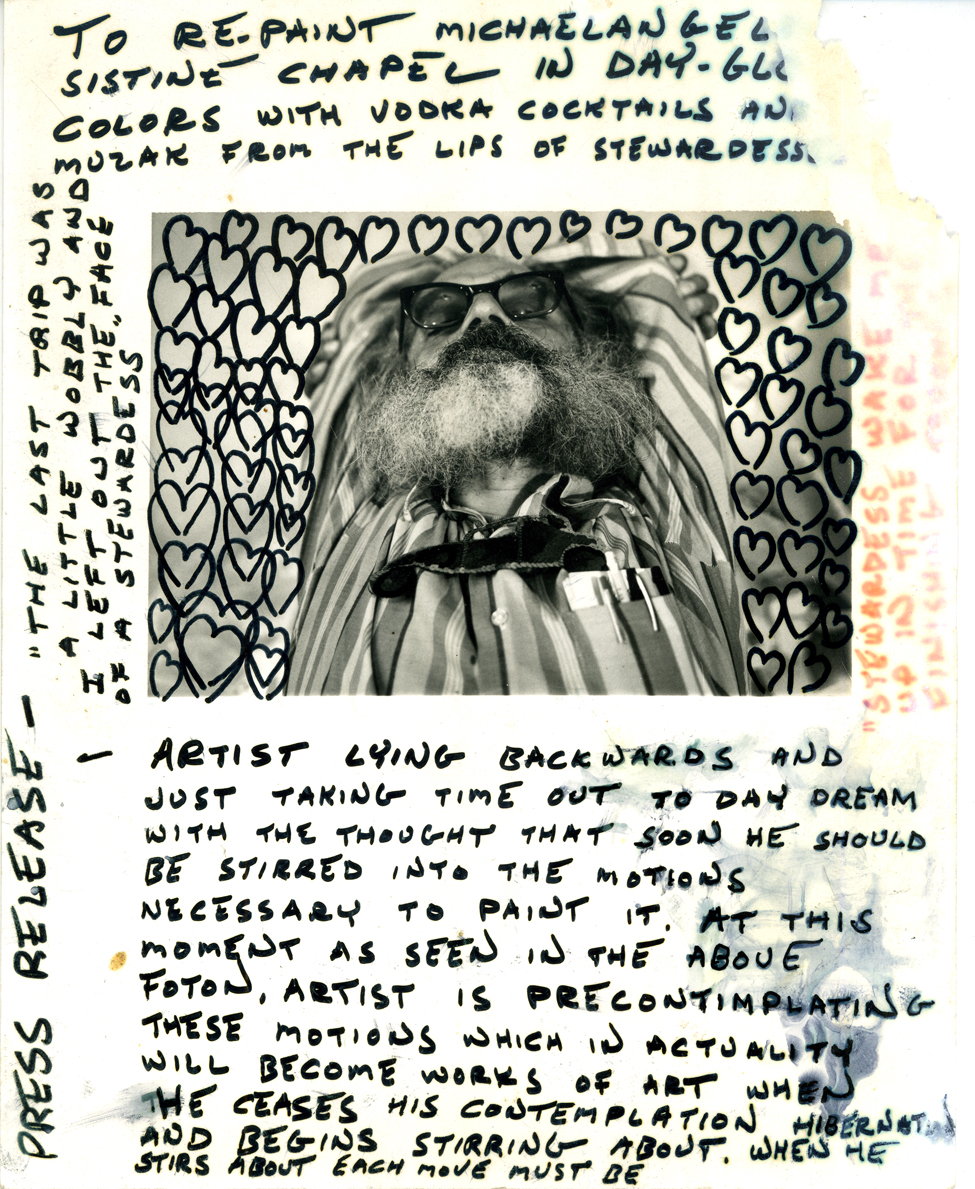 TO RE-PAINT MICHAELANGEL
SISTINE CHAPEL IN DAY-GLO
COLORS WITH VODKA COCKTAILS AN
MUZAK FROM THE LIPS OF STEWARDESS
PRESS RELEASE —
"THE LAST TRIP WAS
A LITTLE WOBBLY AND
I LEFT OUT THE "FACE
OF A STEWARDESS
"STEWARDESS WAKE ME
UP IN TIME FOR
FINISHING
— ARTIST LYING BACKWARDS AND
JUST TAKING TIME OUT TO DAY DREAM
WITH THE THOUGHT THAT SOON HE SHOULD
BE STIRRED INTO THE MOTIONS
NECESSARY TO PAINT IT. AT THIS
MOMENT AS SEEN IN THE ABOVE
FOTON, ARTIST IS PRECONTIMPLATING
THESE MOTIONS WHICH IN ACTUALITY
WILL BECOME WORKS OF ART WHEN
HE CEASES HIS CONTEMPLATION HIBERNAT
AND BEGINS STIRRING ABOUT. WHEN HE
STIRS ABOUT EACH MOVE MUST BE